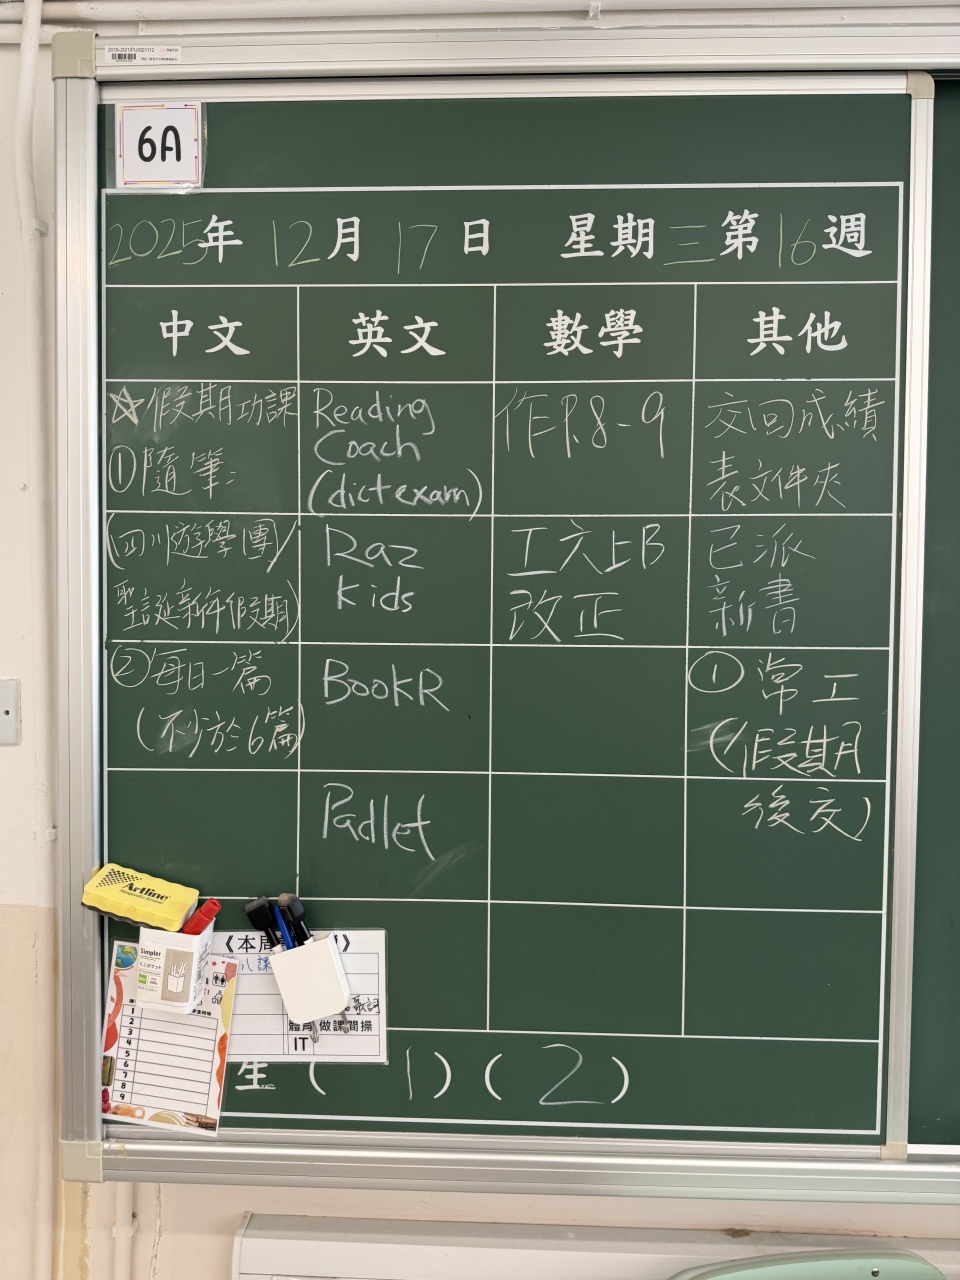 2019-20/1/FU/001112
6A
2025年 12月 17日 星期三 第16週
中文 英文 數學 其他
☆假期功課
①隨筆:
(四川遊學團/
聖誕新年假期)
②每日一篇
(不少於6篇)
Reading
Coach
(dictexam)
Raz
Kids
BookR
Padlet
作P.8-9
工六上B
改正
交回成績
表文件夾
已派
新書
①常工
(假期
後交)
Artline
Simpler
ミニポケット
《本周
》
八課
歌詞
體育 做課間操
IT
1
2
3
4
5
6
7
8
9
生 ( 1 ) ( 2 )